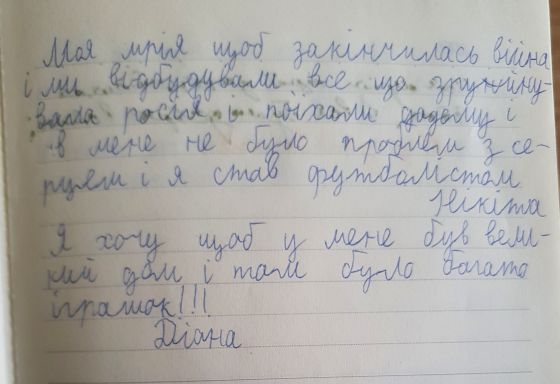 Моя мрія щоб закінчилась війна
і ми відбудували все що зруйну-
вала росія і поїхали додому і
в мене не було проблем з се-
рцем і я став футболістом
Нікіта
Я хочу щоб у мене був вели-
кий дом і там було багато
іграшок!!!
Діана